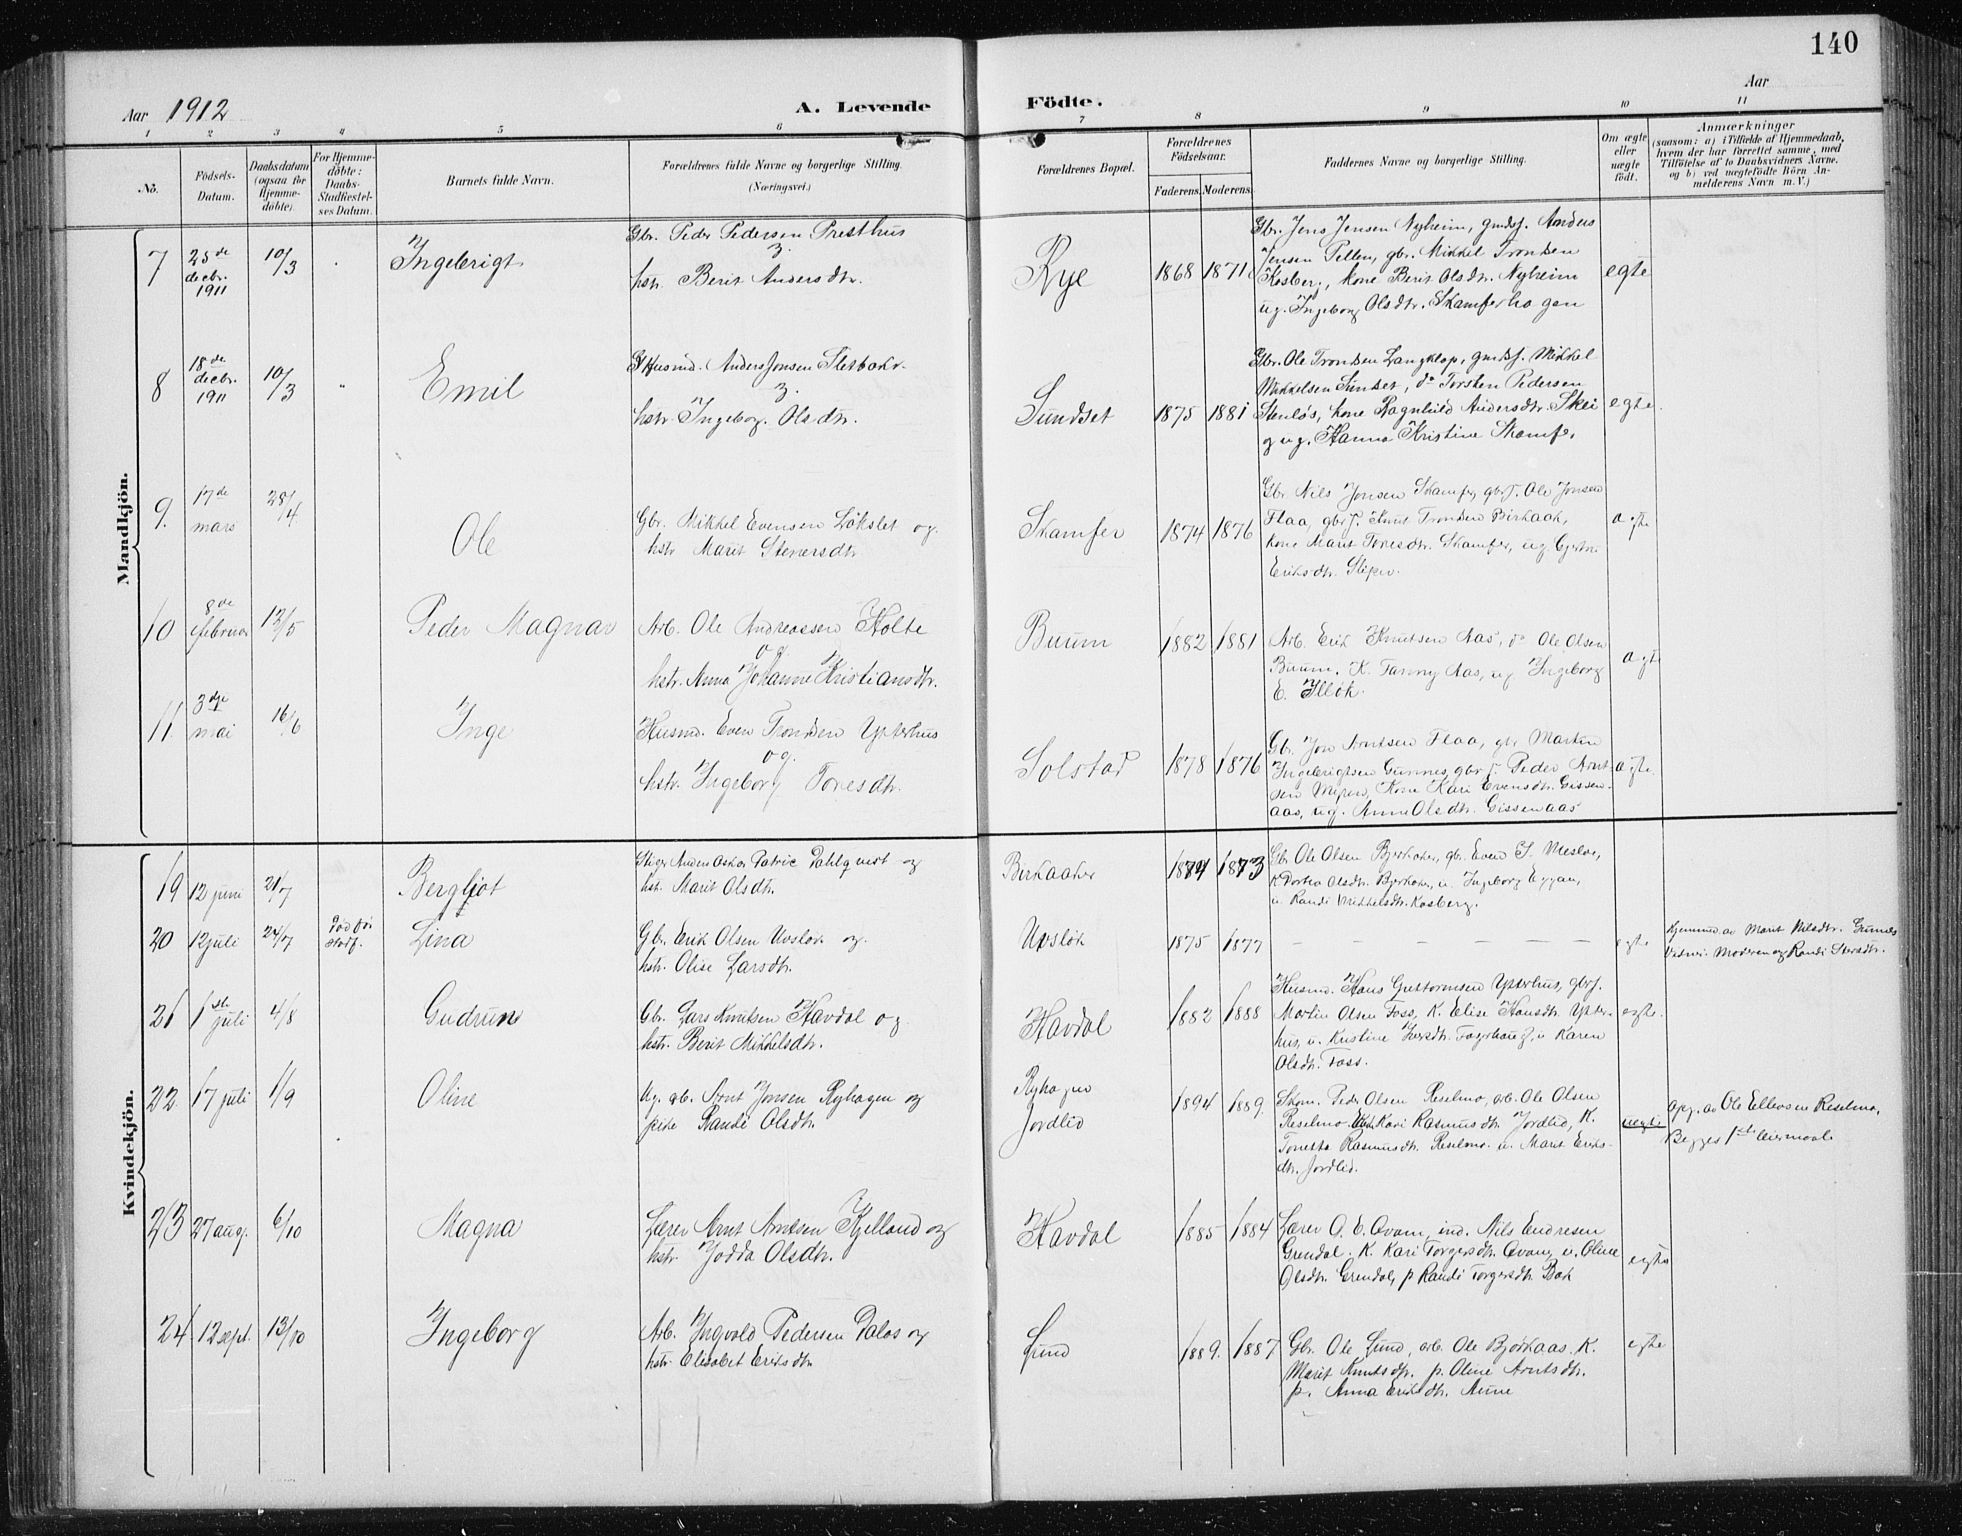 140
Aar 1912
A. Levende Födte.
Aar
1 2 3 4 5 6 7 8 9 10 11
No.
Födsels-Datum.
Daabsdatum (ogsaa for Hjemme-döbte).
For Hjemme-döbte: Daabs-Stadfæstel-ses Datum.
Barnets fulde Navn.
Forældrenes fulde Navne og borgerlige Stilling. (Næringsvei.)
Forældrenes Bopæl.
Forældrenes Födselsaar.
Faderens. Moderens.
Faddernes Navne og borgerlige Stilling.
Om ægte eller uægte födt.
Anmærkninger
(saasom: a) i Tilfælde af Hjemmedaab,
hvem der har forrettet samme, med
Tilföielse af to Daabsvidners Navne.
og b) ved uægtefödte Börn An-
melderens Navn m. V.)
Mandkjön.
7 25de decbr. 1911 10/3 Ingebrigt
Gbr. Peder Pedersen Presthus
hstr. Berit Andersdtr.
Rye 1868 1871
Gbr. Jens Jensen Nyheim, gmdsf. Anders
Jensen Tellen, gbr. Mikkel Trondsen
Kosberg, kone Berit Olsdtr. Nyheim
ug. Ingeborg Olsdtr. Skamferhagen
egte
8 18de decbr. 1911 10/3 " Emil
Husmd. Anders Jonsen Sletbakk.
hstr. Ingeborg Olsdtr.
Sundset 1875 1881
Gbr. Ole Trondsen Langklop, gmdsf. Mikkel
Mikkelsen Sundset, do Torsten Pedersen
Stenløs, kone Ragnhild Andersdtr. Skei
og ug. Hanna Kristine Skamfer
egte.
9. 17de mars 28/4 Ole
Gbr. Mikkel Evensen Løkslet og
hstr. Marit Stenersdtr
Skamfer 1874 1876
Gbr. Nils Jonsen Skamfer, gbrf. Ole Jonsen
Flaa, gbrf. Knut Trondsen Birkaak,
kone Marit Toresdtr. Skamfer, ug.
Eriksdtr. Slipper.
egte
10 8de februar 12/5 Peder Magnar
Arb. Ole Andreassen Holte
og
hstr. Anna Johanne Kristiansdtr.
Buum 1882 1881
Arb. Erik Knutsen Aas, do Ole Olsen
Buum. K. Fanny Aas, ug Ingeborg
E. Illøk.
egte
11. 3dje mai 16/6 Inge
Husmd. Even Trondsen Ytterhus
og.
hstr. Ingeborg Toresdtr.
Solstad 1878 1876
Gbr. Jon Arntsen Flaa, gbr Martin
Ingebrigtsen Gunnes, gbrf. Peder Arnt
sen Myren, Kone Kari Evensdtr. Gissen-
aas, ug. Anne Olsdtr. Gissenaas
egte.
Kvindekjön.
19 12 juni 21/7 Bergljot
Stiger Anders Oskar Patric Dahlqvist og
hst. Marit Olsdtr.
Birkaaker 1874 1873
Gbr. Ole Olsen Bjerkaker, gbr. Even J. Mesloe,
K. Dortea Olsdtr. Bjerkaker, u. Ingeborg Eggan,
u. Randi Mikkelsdtr. Kosberg.
20 12 juli 24/7 Død før stadf. Lina
Gbr. Erik Olsen Uvsløk og.
hstr. Olise Larsdtr.
Uvsløk 1875 1877 – – – – – – egte
Hjemmed. av Marit Nilsdtr. Gunnes
Vidner: Moderen og Randi
21 1ste juli 4/8 Gudrun
Gbr. Lars Knutsen Havdal og
hstr. Berit Mikkelsdtr.
Havdal 1882 1888
Husmd. Hans Guttormsen Ytterhus, gbrf.
Martin Olsen Foss, K. Elise Hansdtr. Ytter-
hus, u. Kristine Iversdtr. Fagerhaug, u Karen
Olsdtr. Foss.
egte.
22 17 juli 1/9 Oline
Ug. gb. Arnt Jonsen Ryhagen og
pike Randi Olsdtr.
Ryhagen
Jordlid
1894 1889.
Skom. Peder Olsen Reselmo, arb. Ole Olsen
Reselmo. Kari Rasmusdtr. Jordlid, K.
Tonetta Rasmusdtr. Reselmo. u. Marit Eriks-
dtr. Jordlid.
uegte
Opg. av Ole Ellevsen Reselmo,
Begges 1ste leiermaal.
23 27 aug. 6/10 Magna
Lærer Arnt Arntsen Kjelland og
hstr. Jodda Olsdtr.
Havdal 1885 1884
Lærer O. E. Qvam, ind. Nils Endresen
Grendal. K. Kari Torgersdtr. Qvam, u. Oline
Olsdtr. Grendal, p Randi Torgersdtr. Bak
egte
24 12 sept. 13/10 Ingeborg
Arb. Ingvald Pedersen Dalos og
hstr. Elisabet Eriksdtr.
Lund 1889. 1887
Gbr. Ole Lund, arb. Ole Bjørkaas. K.
Marit Knutsdtr. p. Oline Arntsdtr.
p. Anna Eriksdtr. Aune
egte